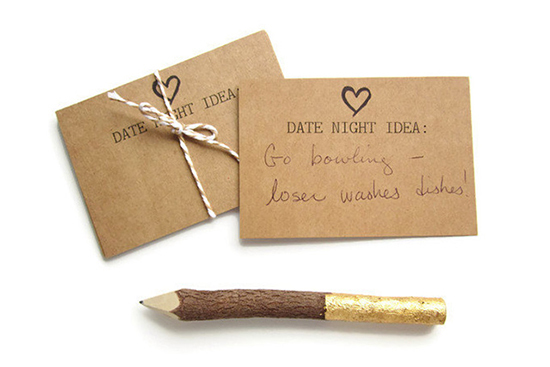 DATE NIGHT IDEA:
DATE NIGHT IDEA:
Go bowling –
loser washes dishes!